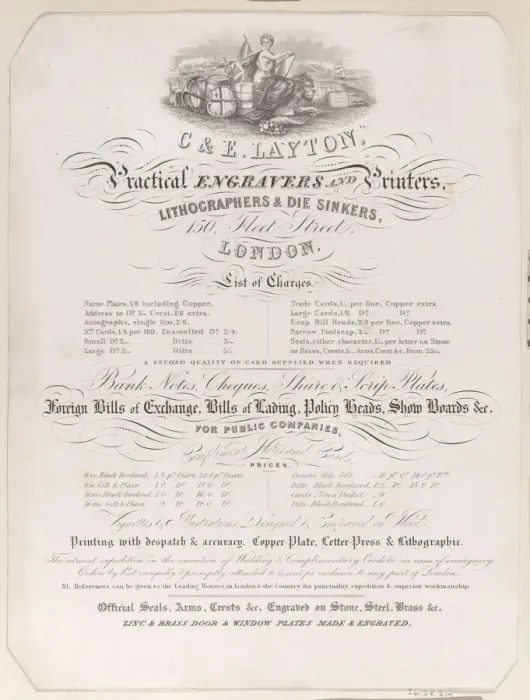 C & E. LAYTON,
Practical ENGRAVERS AND Printers,
LITHOGRAPHERS & DIE SINKERS,
150, Fleet Street,
LONDON.
List of Charges.
Name Plates, 1/6 including Copper.
Address to Do Crest, 2/6 extra.
Autographs, single line, 2/6.
Cards, 1/6 per 100, Enamelled Do
Small Do Ditto
Large Do Ditto
Trade Cards, per line, Copper extra.
Large Cards, 1/6 Do Do
Fcap Bill Heads, 2/6 per line, Copper extra.
Narrow Foolscap, Do Do
Seals, either character, per letter on Stone
or Brass, Crests, Arms, Crest &c. from
A SECOND QUALITY OF CARD SUPPLIED WHEN REQUIRED
Bank Notes, Cheques, Share & Scrip Plates,
Foreign Bills of Exchange, Bills of Lading, Policy Heads, Show Boards &c.
FOR PUBLIC COMPANIES,
Complimentary Notes and Cards,
PRICES.
8vo Black Bordered Quire Ream
8vo Gilt & Plain
16mo Black Bordered
16mo Gilt & Plain
Queens Size Gilt
Ditto Black Bordered
Cards 25 in a Packet
Ditto Black Bordered
Vignettes & Illustrations Designed & Engraved on Wood.
Printing with despatch & accuracy. Copper-Plate, Letter-Press & Lithographic.
The utmost expedition in the execution of Wedding & Complimentary Cards &c in cases of emergency.
Orders by Post carefully & promptly attended to & sent for inclusion to any part of London.
References can be given to the Leading Houses in London & the Country for punctuality expedition & superior workmanship.
Official Seals, Arms, Crests &c. Engraved on Stone, Steel, Brass &c.
ZINC & BRASS DOOR & WINDOW PLATES MADE & ENGRAVED.